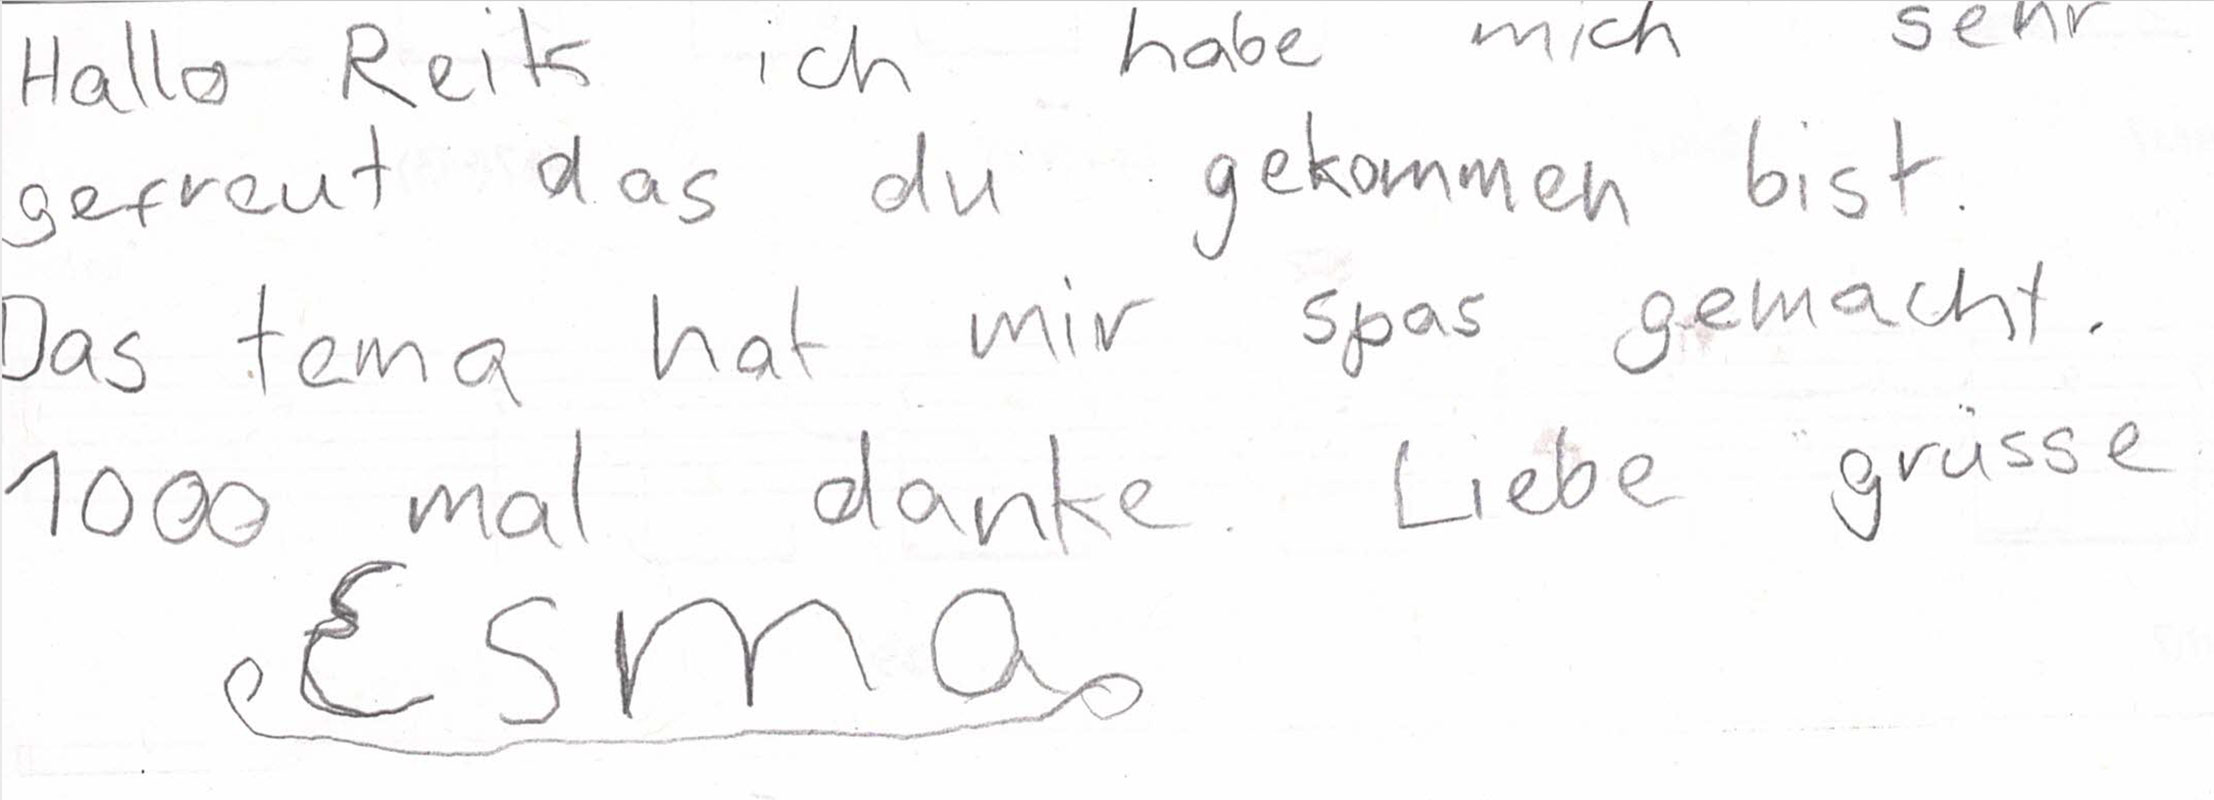 Hallo Reik ich habe mich sehr
gefreut das du gekommen bist.
Das tema hat mir spas gemacht.
1000 mal danke. Liebe grüsse
Esma